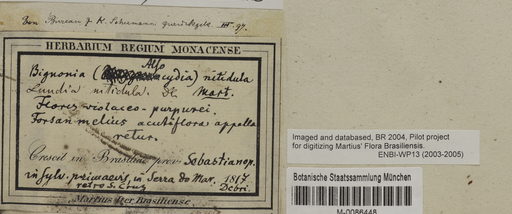 Von Bureau & K. Schumann zurückgelegt III. 97.
HERBARIUM REGIUM MONACENSE
Bignonia (Alsocydia) nitidula
Lundia nitidula. DC Mart.
Flores violaceo-purpurei.
Forsan melius acutiflora appella
retur.
Crescit in Brasiliae prov. Sebastianop.
in sylv. primaevis, in Serra do Mar, 1817
retro S. Cruz Dcbri.
Martius Iter Brasiliense.
Imaged and databased, BR 2004, Pilot project
for digitizing Martius' Flora Brasiliensis.
ENBI-WP13 (2003-2005)
Botanische Staatssammlung München
M-0086448